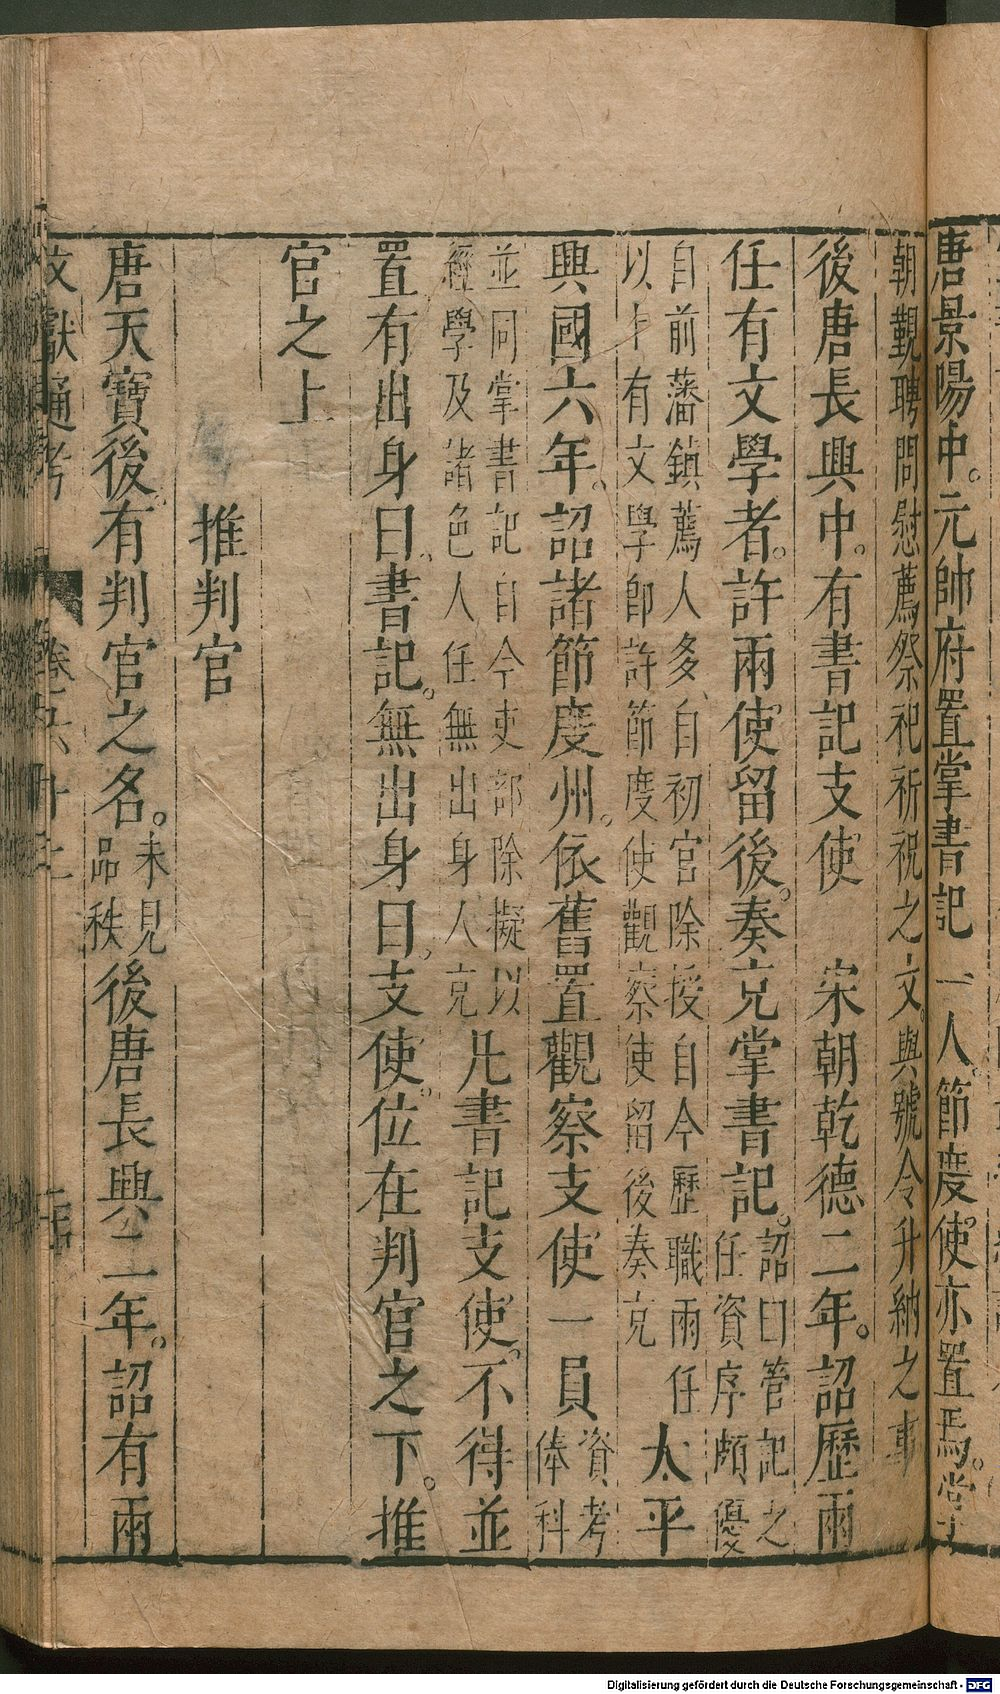 唐景陽中。元帥府置掌書記一人。節度使亦置焉。掌
朝覲聘問慰薦祭祀祈祝之文。與號令升納之事
後唐長興中。有書記支使　宋朝乾德二年。詔歷兩
任有文學者。許兩使留後。奏充掌書記。詔曰管記之
任資序頗優
自前藩鎮薦人多、自初官除授自今歷職兩任
以上有文學即許節度使觀察使留後奏充
太平
興國六年。詔諸節度州。依舊置觀察支使一員資考
俸科
並同掌書記自今吏部除擬以
經學及諸色人任無出身人充
凡書記支使。不得並
置有出身曰。書記。無出身曰。支使。位在判官之下。推
官之上
推判官
唐天寶後。有判官之名。未見
品秩
後唐長興二年。詔有兩
文獻通考
卷六十二
Digitalisierung gefördert durch die Deutsche Forschungsgemeinschaft - DFG